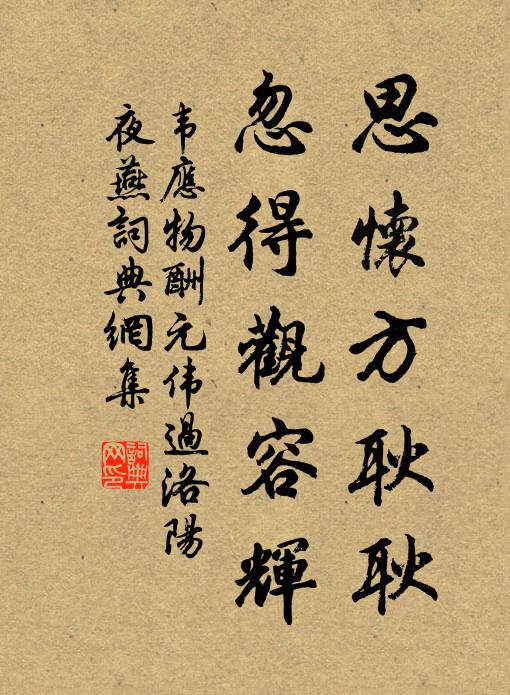 思懷方耿耿
忽得觀容輝
韦應物酬元伟過洛陽
夜燕詞典網集
詞典网印